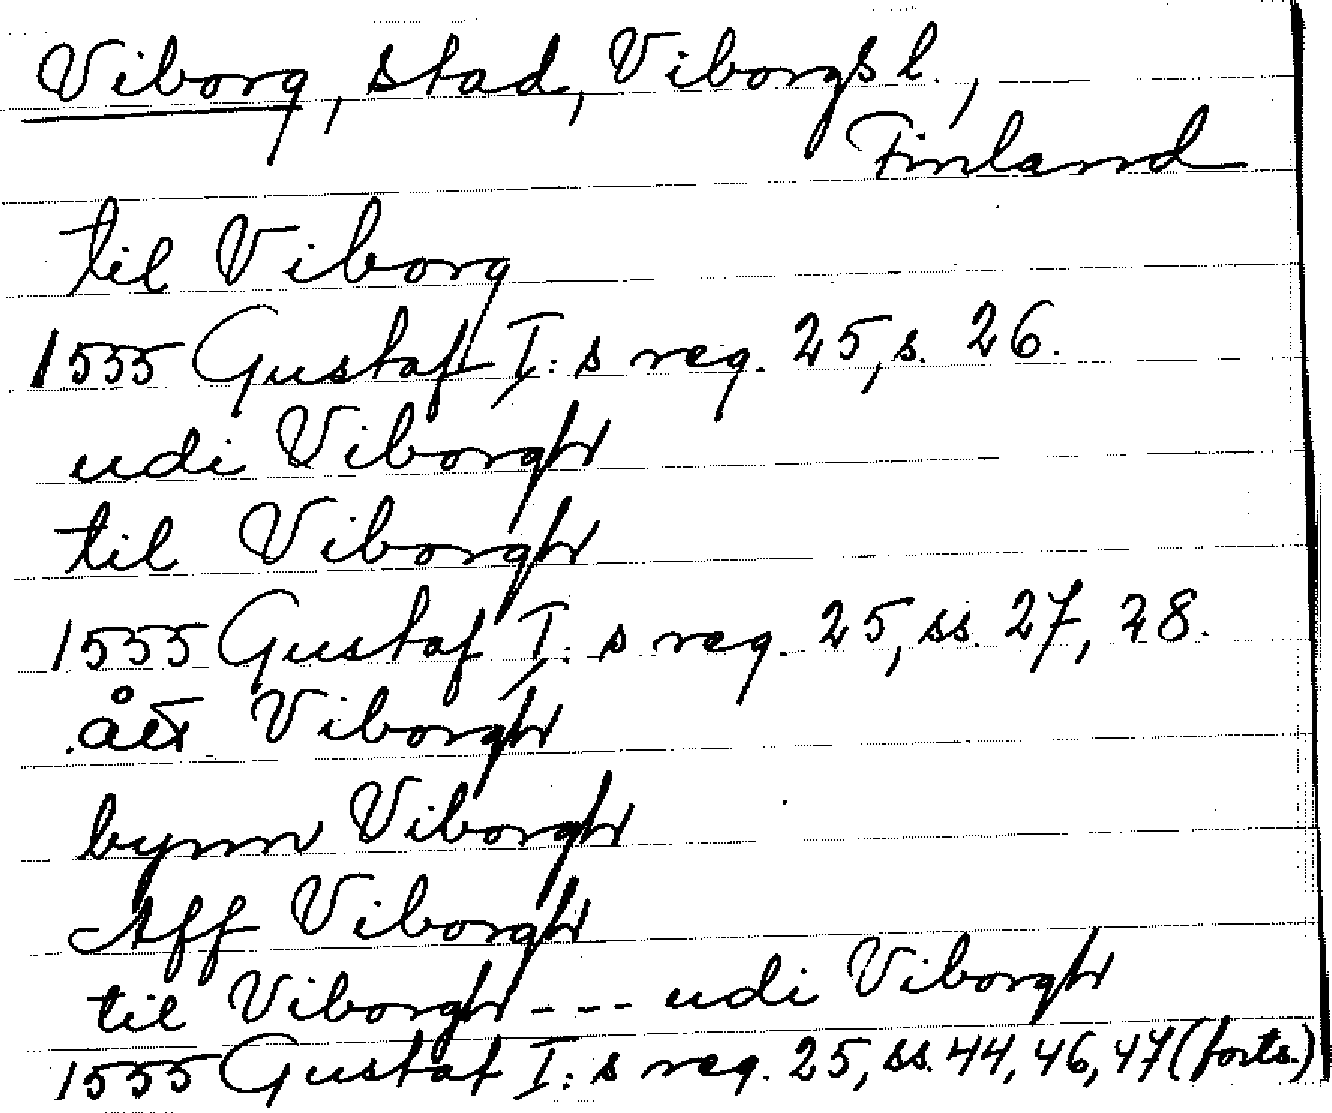 Viborg, stad, Viborgs l.,
Finland
til Viborg
1555 Gustaf I:s reg. 25, s. 26.
udi Viborgh
til Viborgh
1555 Gustaf I:s reg. 25, ss. 27, 28.
ått Viborgh
bynn Viborgh
Aff Viborgh
til Viborgh --- udi Viborgh
1555 Gustaf I:s reg. 25, ss. 44, 46, 47 (forts.)